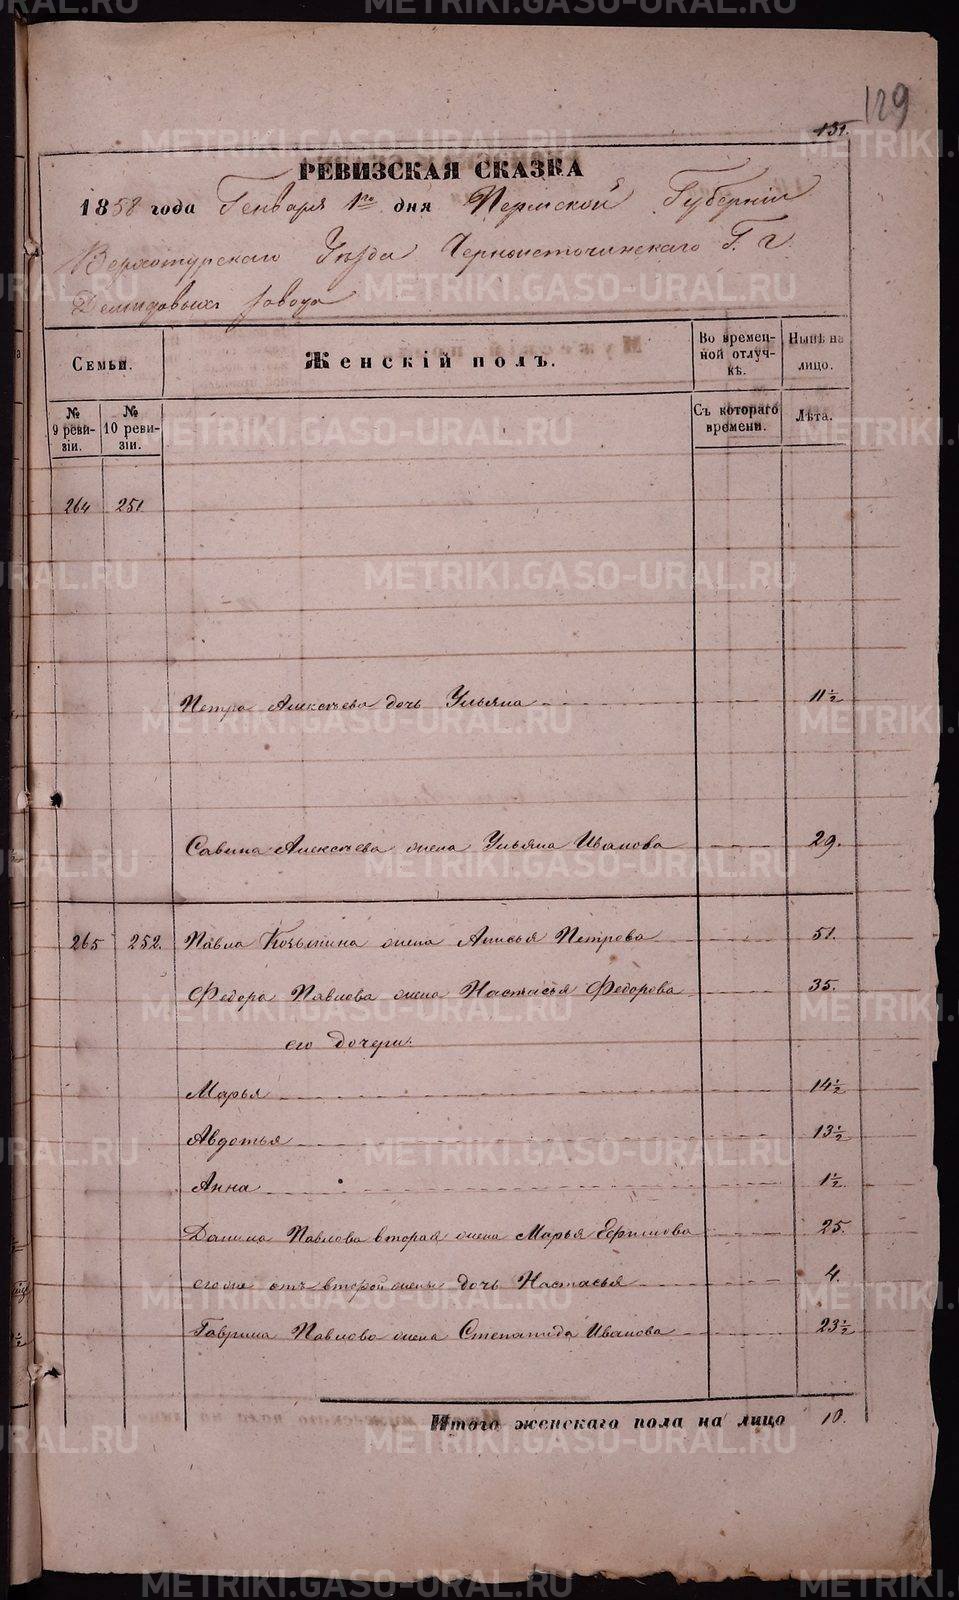 129
131.
РЕВИЗСКАЯ СКАЗКА
1858 года Генваря 1го дня Пермской Губерніи
Верхотурскаго Уѣзда Черноисточинскаго Г. г.
Демидовыхъ завода
Семьи.
Женскій полъ.
Во времен-
ной отлуч-
кѣ.
Нынѣ на
лицо.
№
9 реви-
зіи.
№
10 реви-
зіи.
Съ котораго
времени.
Лѣта.
264 251
Петра Алексѣева дочь Ульяна 11½
Савина Алексѣева жена Ульяна Иванова 29.
265 252. Павла Козьмина жена Анисья Петрова 51.
Федора Павлова жена Настасья Федорова 35.
его дочери:
Марья 14½
Авдотья 13½
Анна 1½.
Данила Павлова вторая жена Марья Ефимова 25.
его же отъ второй жены дочь Настасья 4.
Гаврила Павлова жена Степанида Иванова 23½
Итого женскаго пола на лицо 10.
METRIKI.GASO-URAL.RU